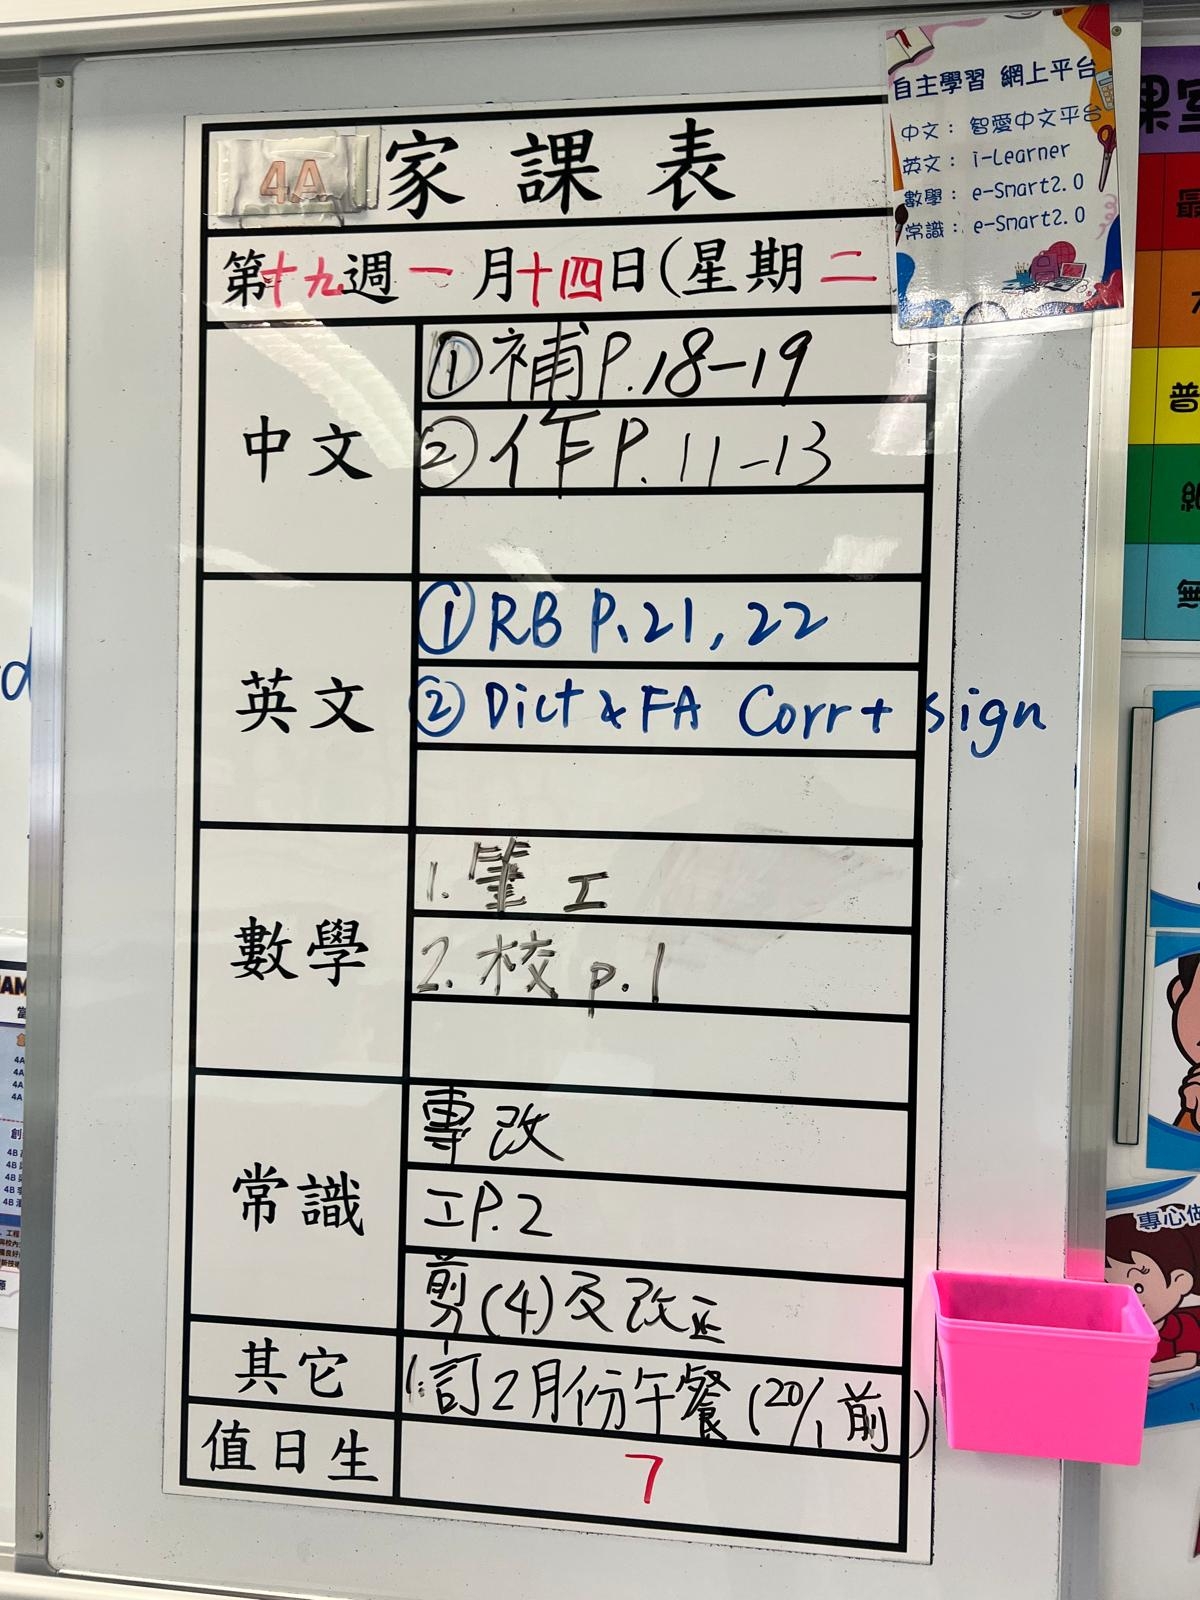 4A 家課表
第十九週 一月十四日(星期二
中文
①補P.18-19
②作P.11-13
英文
①RB P.21, 22
②Dict & FA Corr + sign
數學
1. 筆工
2. 校p.1
常識
專改
工P.2
剪(4)及改正
其它
1.訂2月份午餐(20/1前)
值日生
7
自主學習 網上平台
中文：智愛中文平台
英文：i-Learner
數學：e-Smart2.0
常識：e-Smart2.0
課室
最
普
無
專心做
4A
4A
4A
4A
創
4B
4B
4B
4B
4B